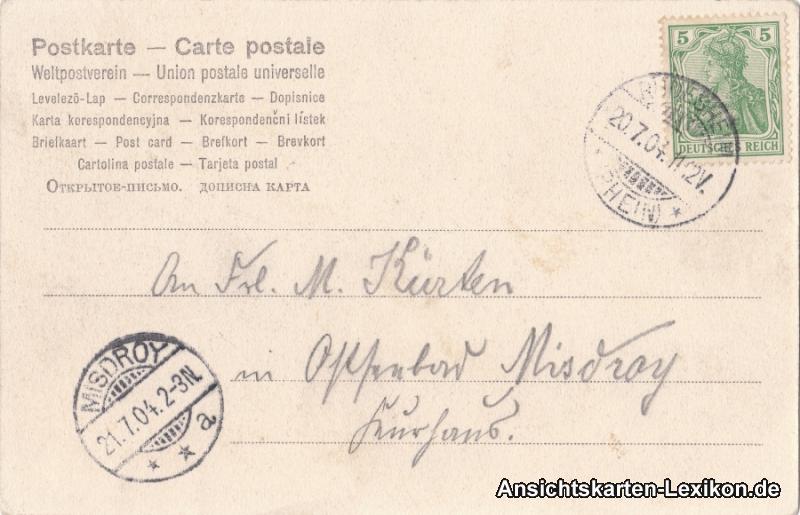 Postkarte — Carte postale
Weltpostverein — Union postale universelle
Levelező-Lap — Correspondenzkarte — Dopisnice
Karta korespondencyjna — Korespondenční lístek
Briefkaart — Post card — Brefkort — Brevkort
Cartolina postale — Tarjeta postal
Открытое-письмо. дописна карта
5 5
DEUTSCHES REICH
20.7.04. 11-12V.
(RHEIN) *
An Frl. M. Kürten
in Ostseebad Misdroy
Kurhaus.
MISDROY
21.7.04. 2-3N.
* * a
Ansichtskarten-Lexikon.de